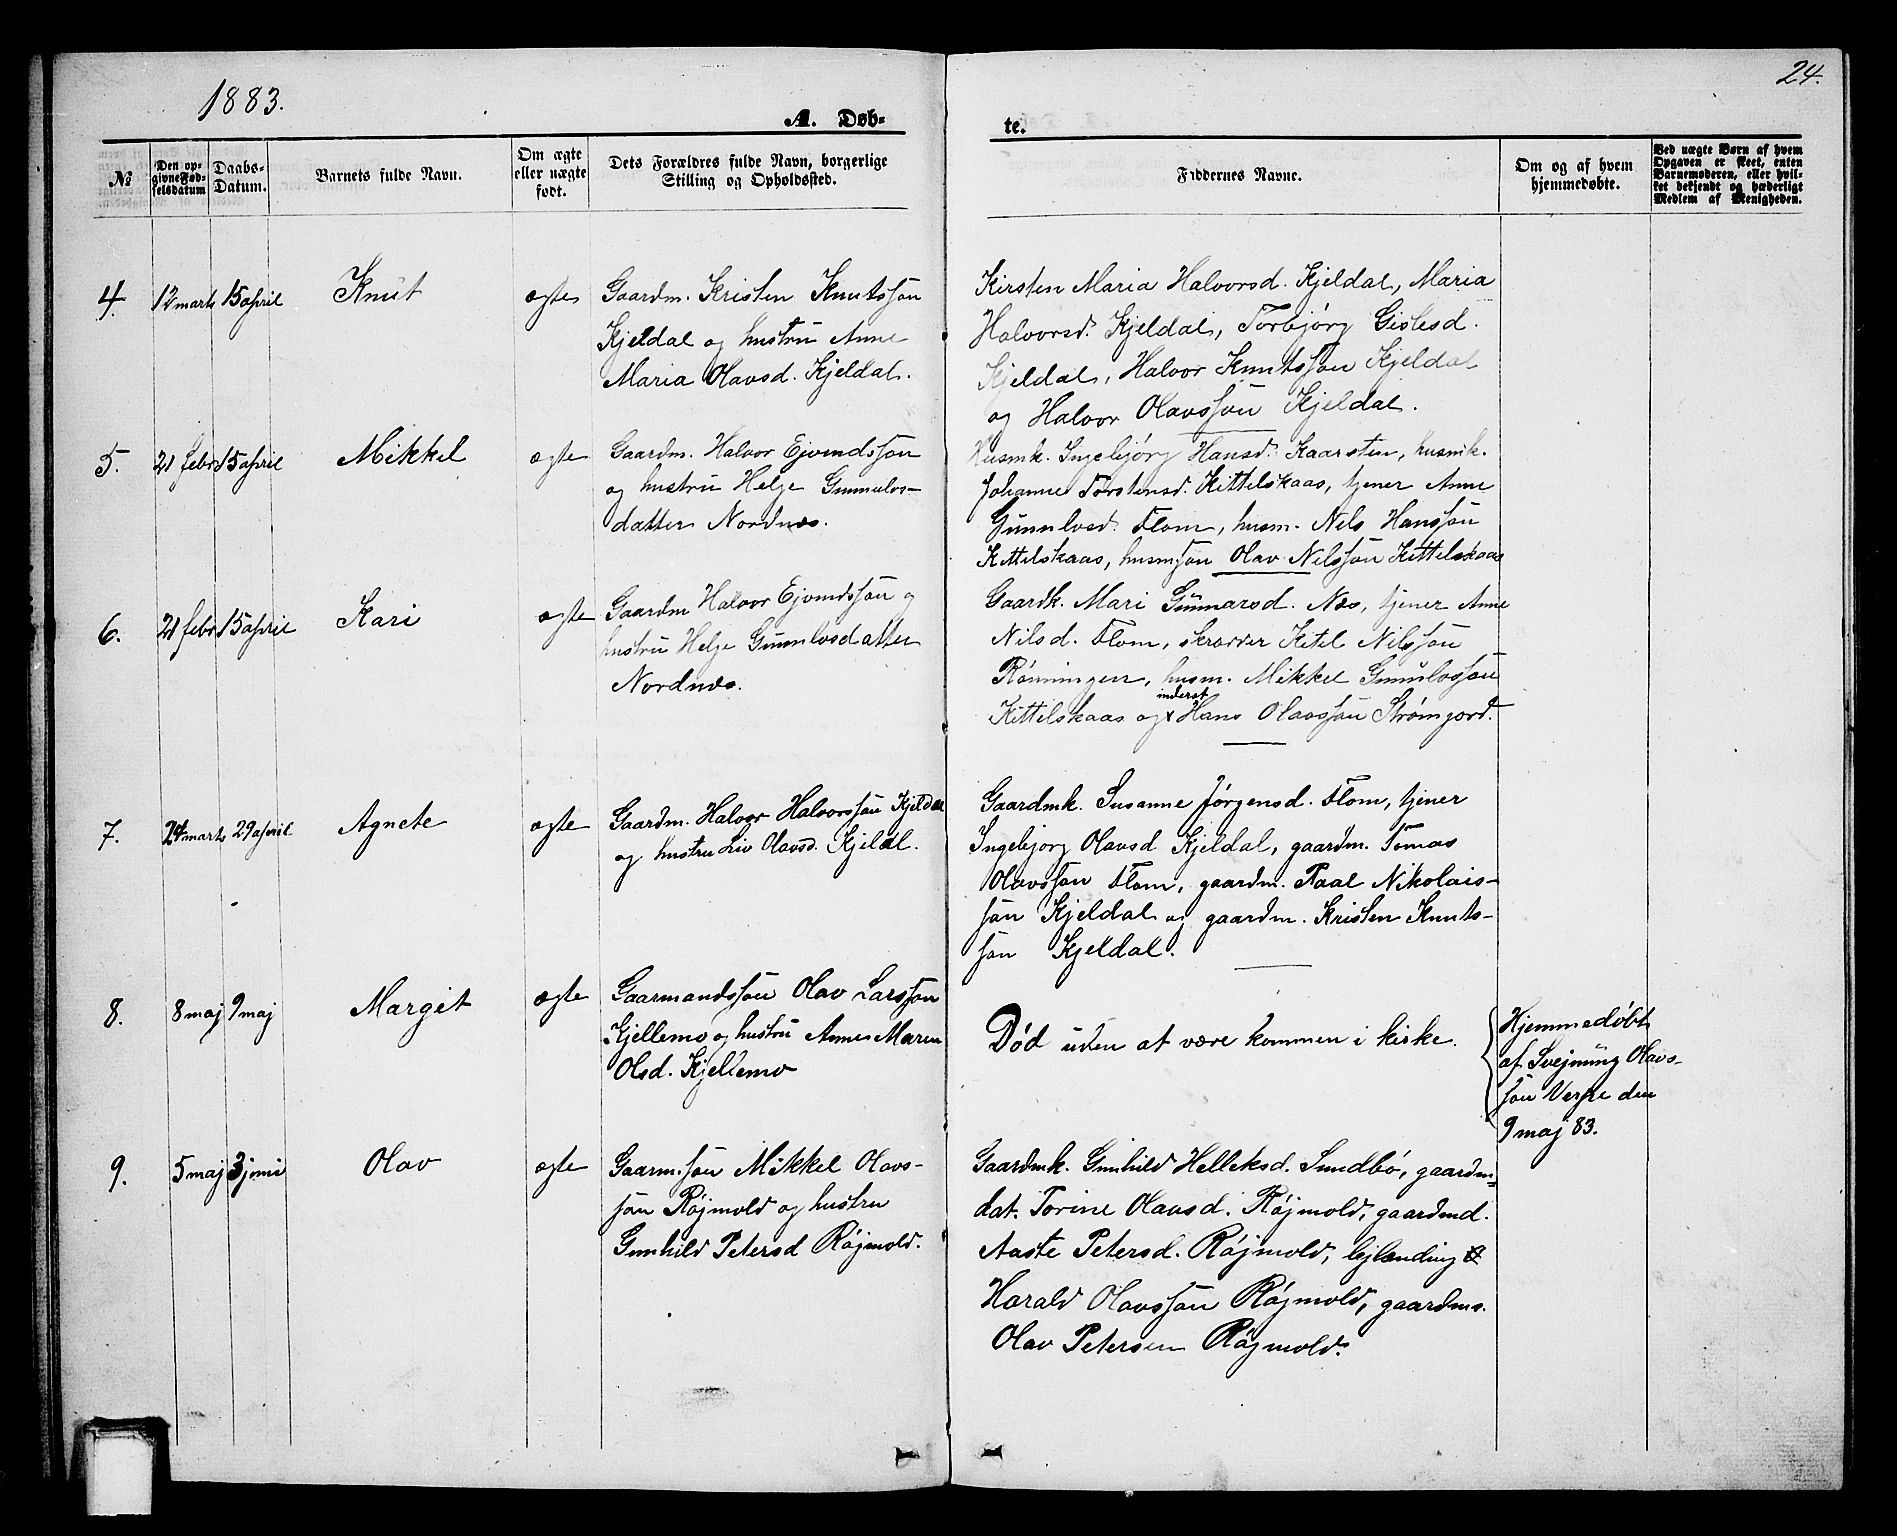 1883.
24.
A. Døb-
te.
№
Den op-
givne Fød-
selsdatum
Daabs-
Datum.
Barnets fulde Navn.
Om ægte
eller uægte
født.
Dets Forældres fulde Navn, borgerlige
Stilling og Opholdssted.
Faddernes Navne.
Om og af hvem
hjemmedøbte.
Ved uægte Børn af hvem
Opgaven er skeet, enten
Barnemoderen, eller hvil-
ket bekjendt og hæderligt
Medlem af Menigheden.
4. 12 marts 15 april Knut ægte
Gaardm. Kristen Knutssøn
Kjeldal og hustru Anne
Maria Olavsd. Kjeldal.
Kirsten Maria Halvorsd. Kjeldal, Maria
Halvorsd. Kjeldal, Torbjørg Gislesd.
Kjeldal, Halvor Knutssøn Kjeldal
og Halvor Olavssøn Kjeldal.
5. 21 febr 15 april Mikkel ægte
Gaardm. Halvor Ejvindssøn
og hustru Helge Gunnulvs-
datter Nordnæs.
Husmk. Ingebjørg Hansd. Kaarsten, husmk.
Johanne Torstensd. Kittelskaas, tjener Anne
Gunnlvsd. Flom, husm. Nils Hanssøn
Kittelskaas, husm.søn Olav Nilssøn Kittelskaas
6. 21 febr 15 april Kari ægte
Gaardm Halvor Ejvindssøn og
hustru Helge Gunnlvsdatter
Nordnæs.
Gaardk. Mari Gunnarsd. Næs, tjener Anne
Nilsd. Flom, skrædder Kitil Nilssøn
Rønningen, husm. Mikkel Gunnulvssøn
inderst
Kittelskaas og x Hans Olavssøn Strømgord.
7. 24 marts 29 april Agnete ægte
Gaardm. Halvor Halvorssøn Kjeldal
og hustru Liv Olavsd. Kjeldl.
Gaardmk. Susanne Jørgensd. Flom, tjener
Ingebjørg Olavsd Kjeldal, gaardm. Tomas
Olavssøn Flom, gaardm. Paal Nikolais-
søn Kjeldal og gaardm. Kristen Knuts-
søn Kjeldal.
8. 8 maj 9 maj Margit ægte
Gaarmandssøn Olav Larssøn
Kjellemo og hustru Anne Maren
Olsd. Kjellemo
Død uden at være kommen i kirke.
Hjemmedøbt
af Svejnung Olavs-
søn Verpe den
9 maj 83.
9. 5 maj 3 juni Olav ægte
Gaarm.søn Mikkel Olavs-
søn Røjmold og hustru
Gunhild Petersd Røjmold.
Gaardmk. Gunhild Helleksd. Sundbø, gaardm-
dat. Torine Olavsd. Røjmold, gaardmd.
Aaste Petersd. Røjmold, lejlænding
Harald Olavssøn Røjmold, gaardms.
Olav Petersen Røjmold.